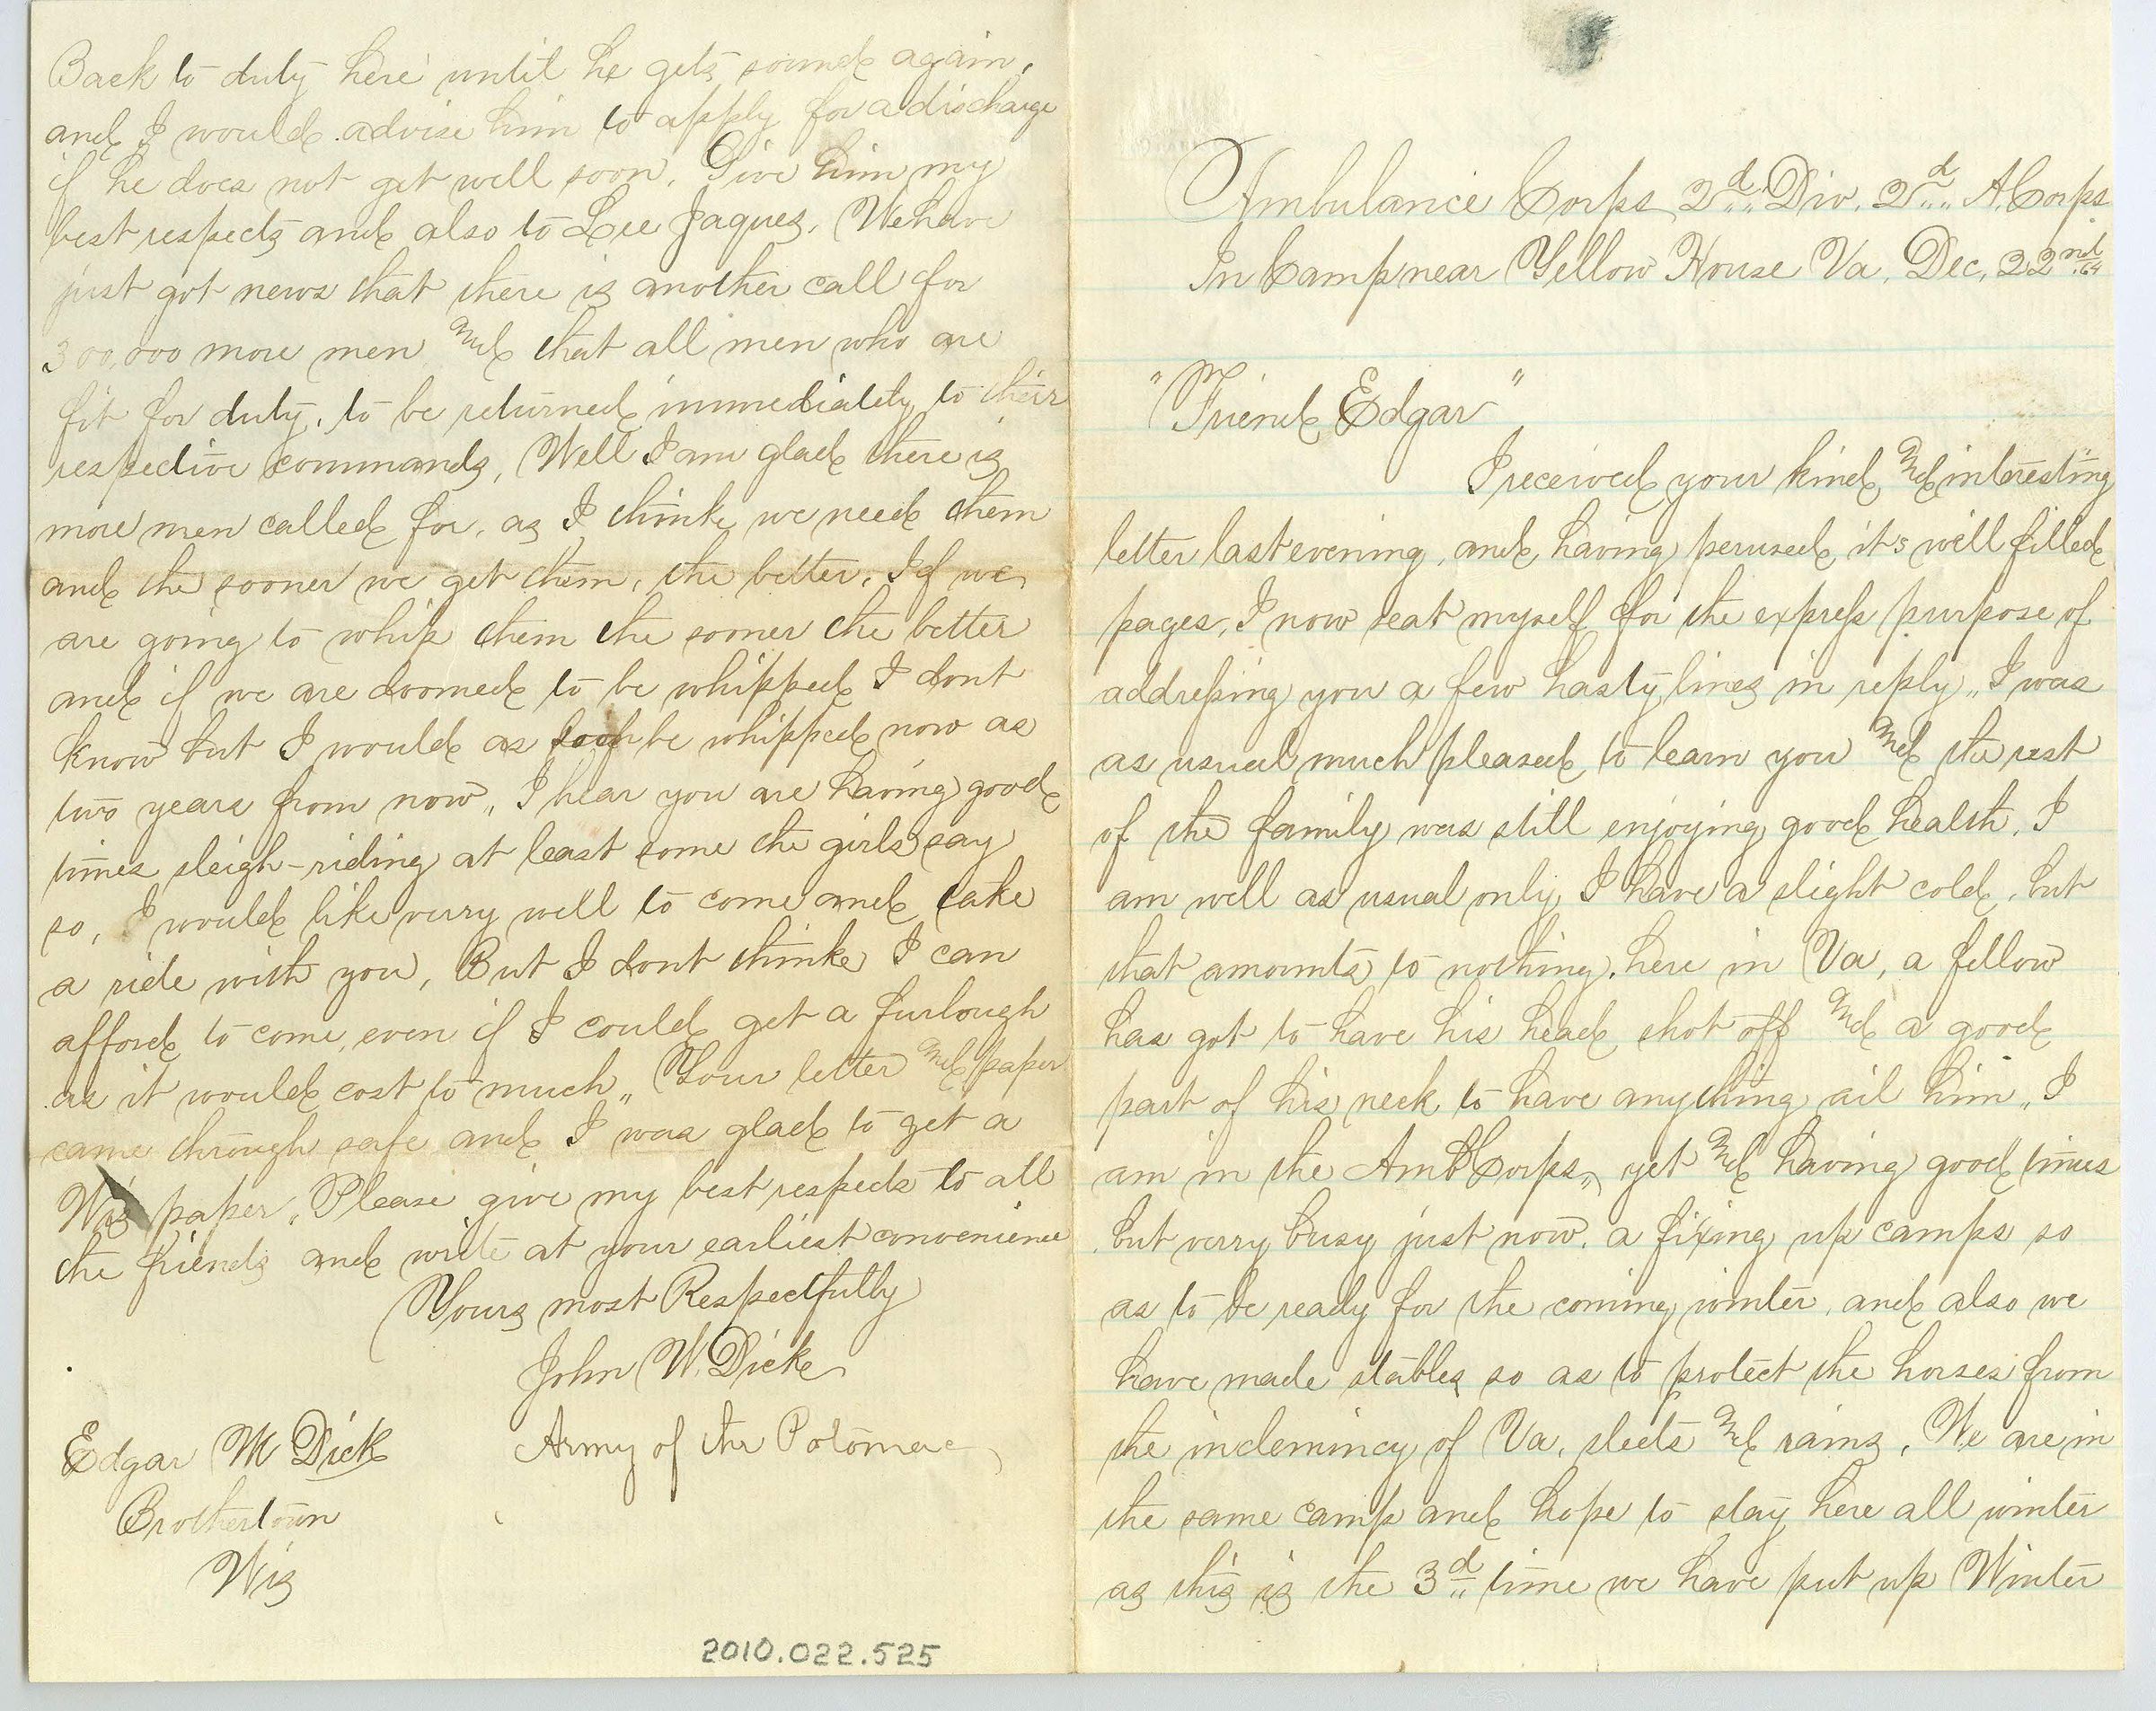 Ambulance Corps 2d Div. 2d A. Corps
In Camp near Yellow House Va. Dec, 22nd 64
"Friend Edgar"
I received your kind And interesting
letter last evening, and having perused it's well filled
pages, I now seat myself for the express purpose of
addressing you a few hasty lines in reply,, I was
as usual much pleased to learn you And the rest
of the family was still enjoying good health. I
am well as usual only I have a slight cold, but
that amounts to nothing. here in Va, a fellow
has got to have his head shot off And a good
part of his neck to have anything ail him,, I
am in the Amb Corps,, yet And having good times
but verry busy just now. a fixing up camps so
as to be ready for the coming winter, and also we
have made stables so as to protect the horses from
the inclemincy of Va, sleets And rains, We are in
the same camp and hope to stay here all winter
as this is the 3d time we have put up Winter
Back to duty here until he gets sound again,
and I would advise him to apply for a discharge
if he does not get well soon. Give him my
best respects and also to Lee Jaques. We have
just got news that there is another call for
300,000 more men And that all men who are
fit for duty, to be returned immediately to their
respective commands, Well I am glad there is
more men called for, as I think we need them
and the sooner we get them, the better. If we
are going to whip them the sooner the better
and if we are doomed to be whipped I dont
know but I would as soon be whipped now as
two years from now,, I hear you are having good
times sleigh-riding at least some the girls say
so, I would like verry well to come and take
a ride with you, But I dont think I can
afford to come, even if I could get a furlough
as it would cost to much,, Your letter And paper
came through safe and I was glad to get a
Wis paper,, Please give my best respects to all
the friends and write at your earliest convenience
Yours most Respectfully
John W. Dick
Army of the Potomac
Edgar M Dick
Brothertown
Wis
2010.022.525